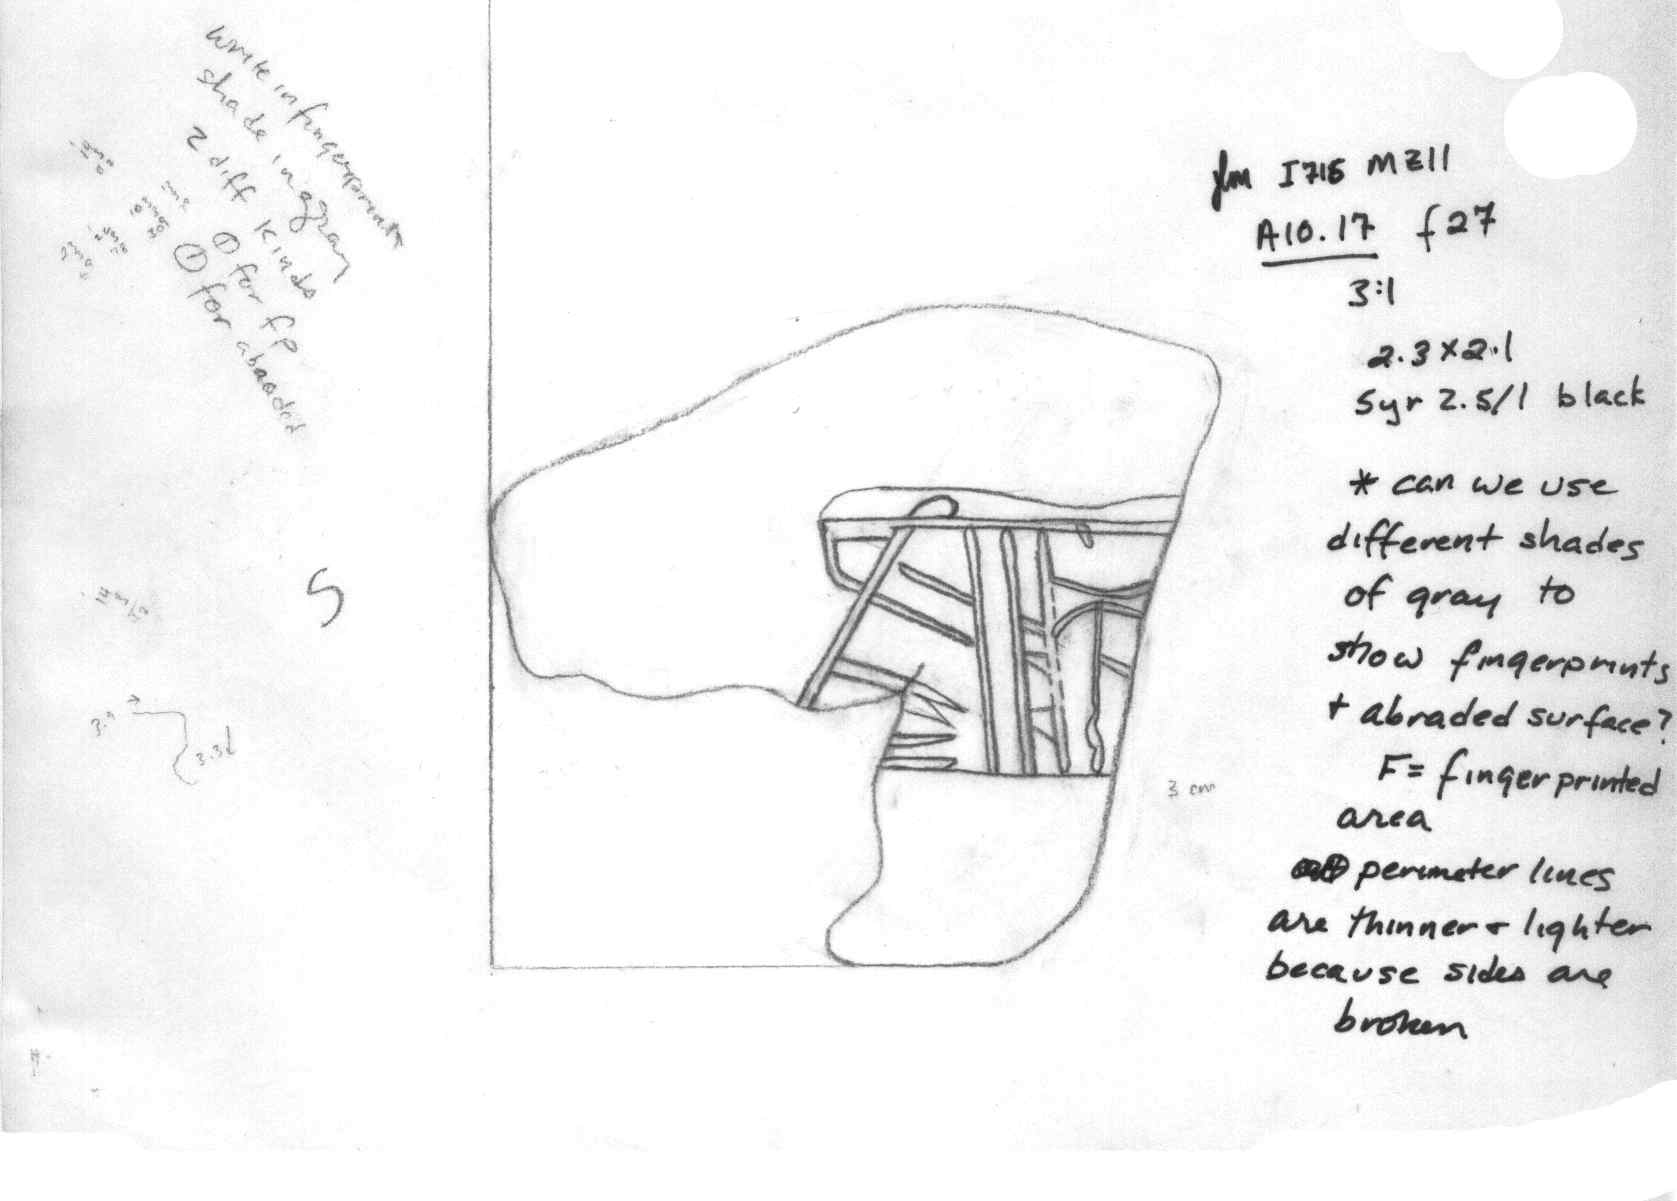 write in fingerprints
shade in gray
2 diff kinds
① for fp
① for abraded
jlm I715 MZ11
A10.17 f27
3:1
2.3x2.1
5yr 2.5/1 black
* can we use
different shades
of gray to
show fingerprints
+ abraded surface?
F= fingerprinted
area
perimeter lines
are thinner + lighter
because sides are
broken
3 cm
5